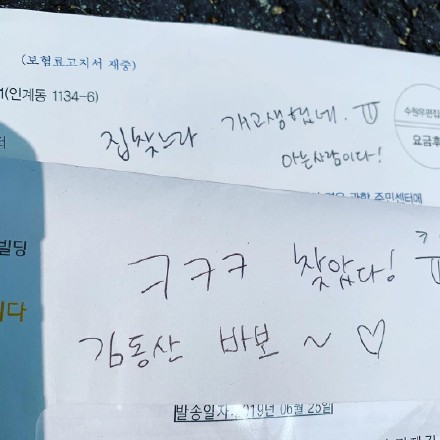 (보험료고지서 재중)
(인계동 1134-6)
집찾느라 개고생했네. ㅠ
아는사람이다!
수원우편집
요금후
주민센터에
빌딩
ㅋㅋㅋ 찾았다! ㅠ
다
김동산 바보 ~ ♡
발송일자: 2019년 06월 25일